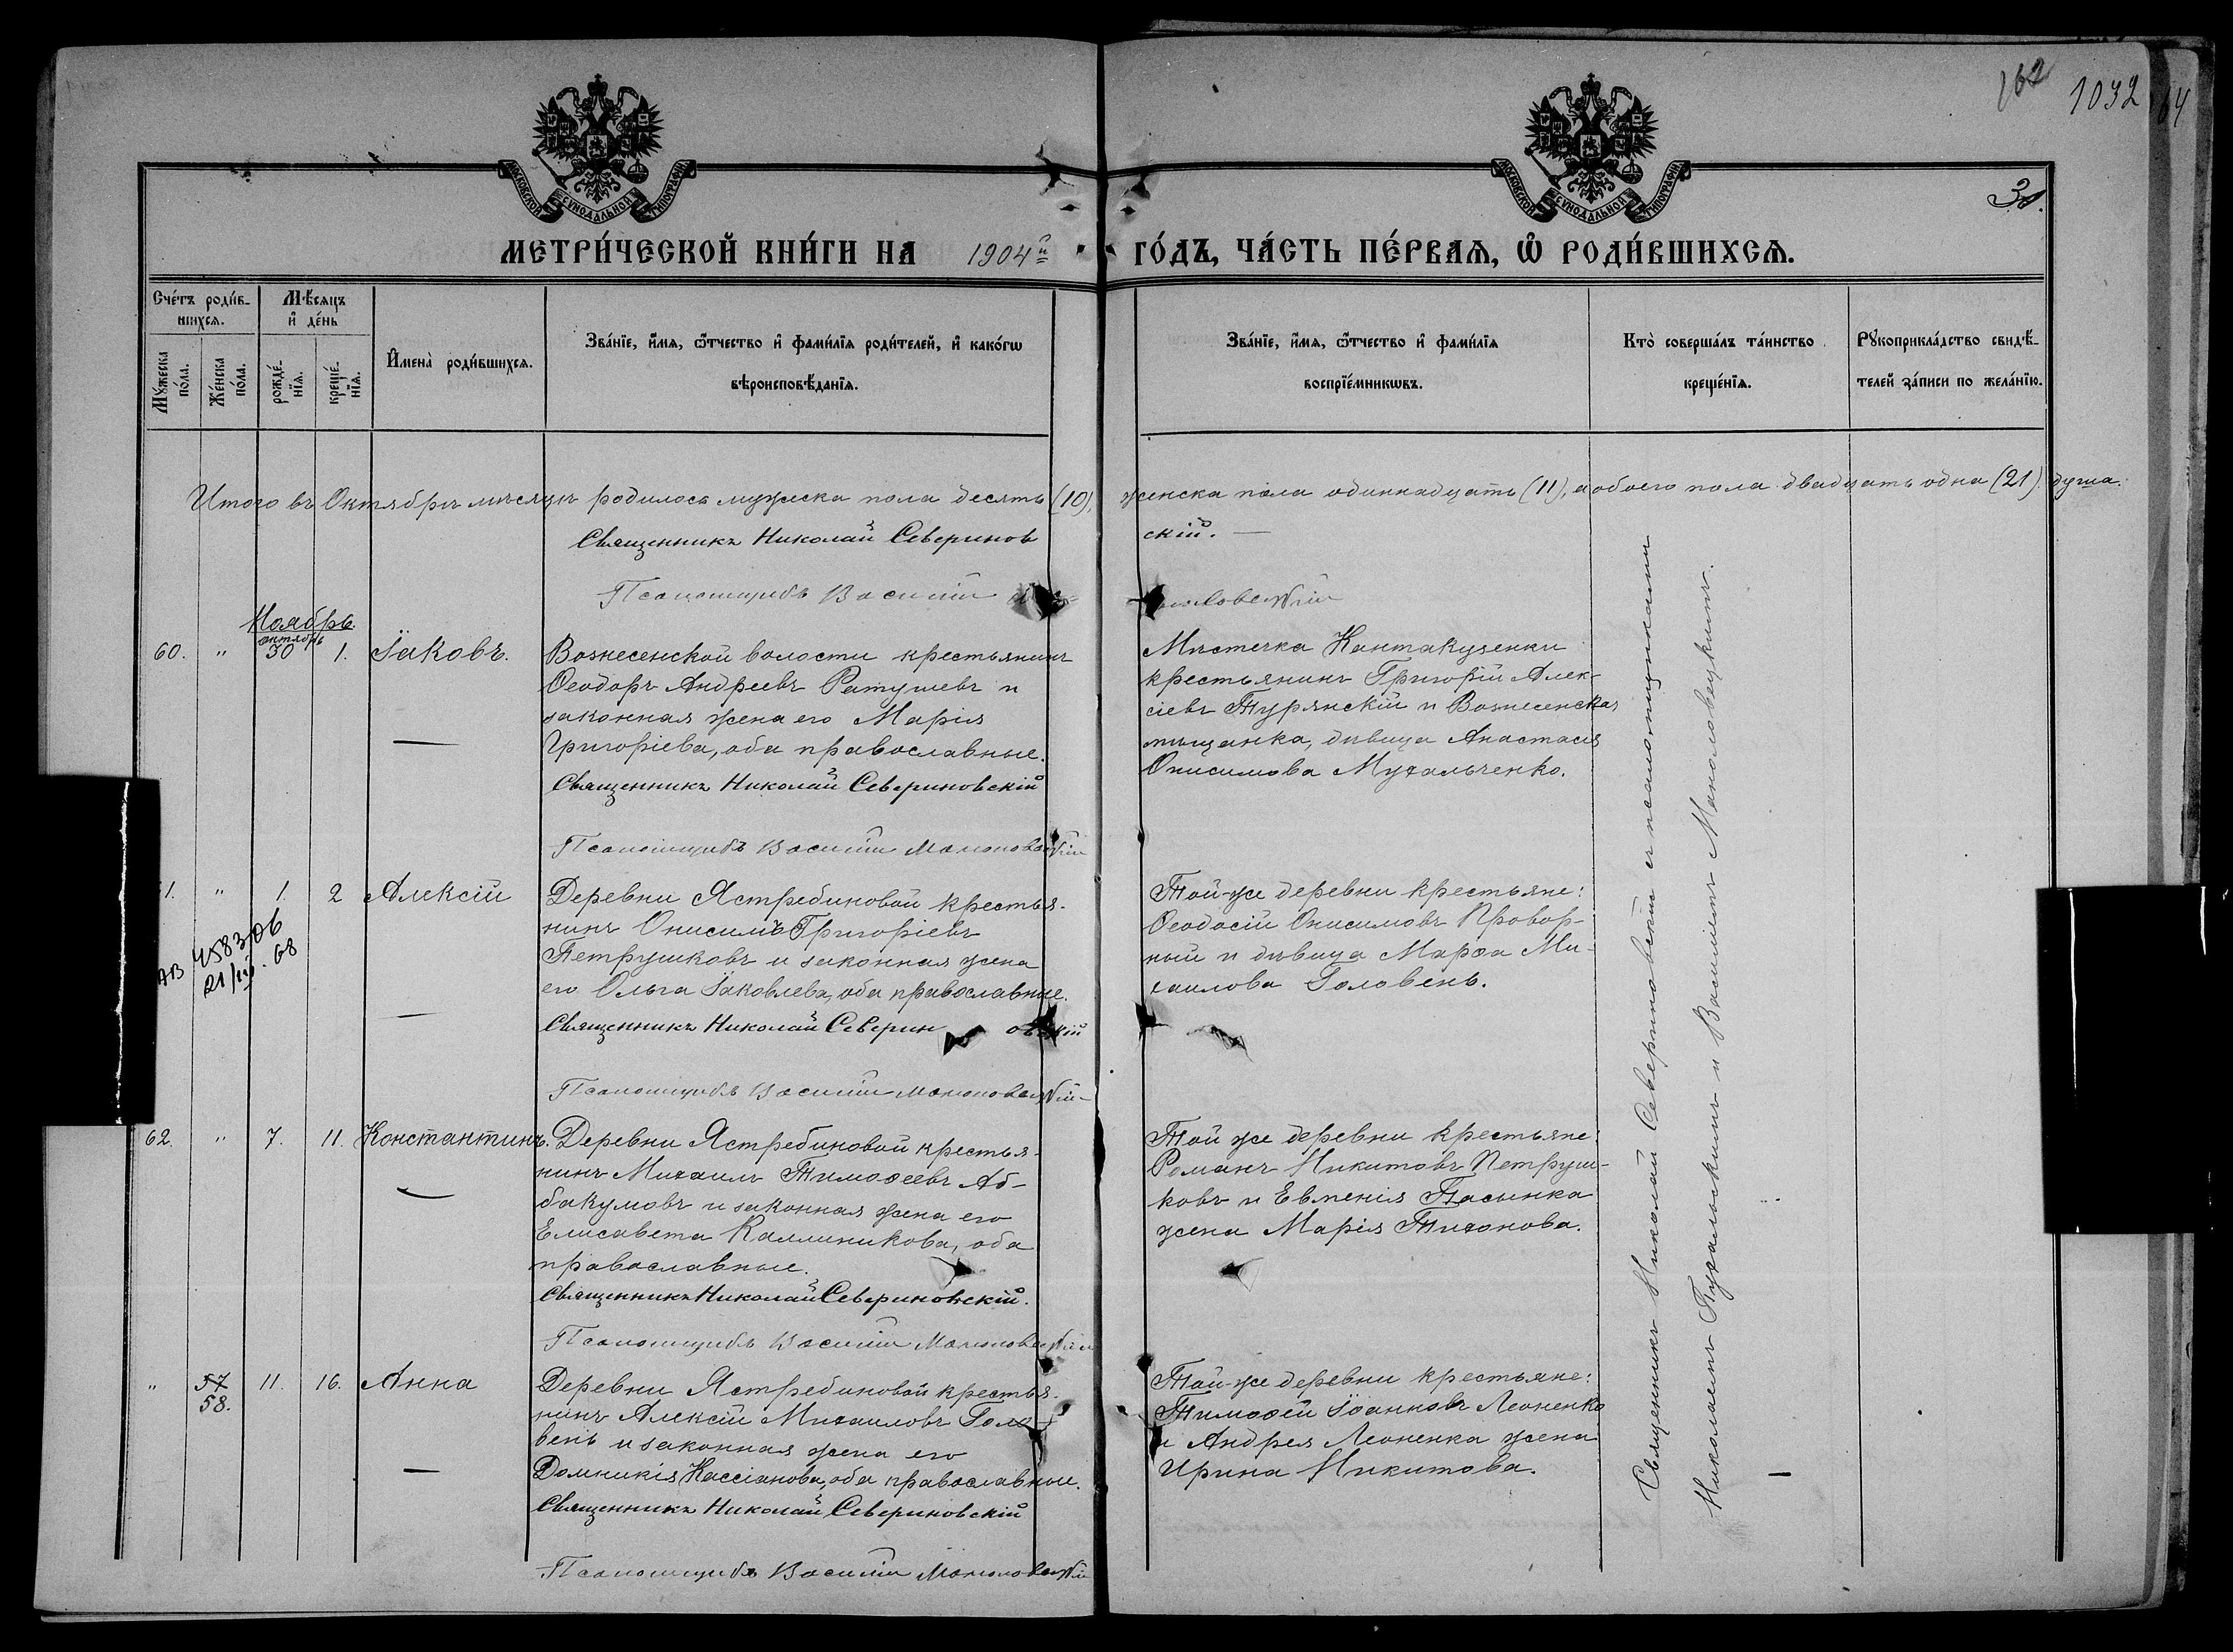 162
1032
64
30.
МОСКОВСКОЙ СѴНОДАЛЬНОЙ ТИПОГРАФІИ
МОСКОВСКОЙ СѴНОДАЛЬНОЙ ТИПОГРАФІИ
МЕТРИ́ЧЕСКОЙ КНИ́ГИ НА 1904й ГО́ДЪ, ЧА́СТЬ ПЕ́РВАЯ, Ѡ҆ РОДИ́ВШИХСЯ.
Сче́тъ роди́вшихся.
Мѣ́сяцъ и҆ де́нь
Му́жеска по́ла.
Же́нска по́ла.
рожде́нїя.
креще́нїя.
И҆мена̀ роди́вшихся.
Зва́нїе, и҆́мя, ѻ҆́тчество и҆ фами́лїя роди́телей, и҆ како́гѡ
вѣроисповѣ́данїя.
Зва́нїе, и҆́мя, ѻ҆́тчество и҆ фами́лїя
воспрїе́мникѡвъ.
Кто̀ соверша́лъ та́инство
креще́нїя.
Рꙋкоприкла́дство свидѣ́телей за́писи по жела́нїю.
Итого въ Октябрѣ мѣсяцѣ родилось мужеска пола десять (10), женска пола одиннадцать (11), а обоего пола двадцать одна (21) душа.
Священникъ Николай Севериновскій. —
Псаломщикъ Василій
Ноябрь.
октябрь
60. " 30 1. Іаковъ.
Вознесенской волости крестьянинъ
Ѳеодоръ Андреевъ Ратушевъ и
законная жена его Марія
Григоріева, оба православные.
Священникъ Николай Севериновскій
Псаломщикъ Василій Маноловецкій
Мѣстечка Кантакузенки
крестьянинъ Григорій Алек-
сіевъ Турянскій и Вознесенская
мѣщанка, дѣвица Анастасія
Онисимова Мухальченко.
61. " 1. 2 Алексій
АВ 4583/06
21/III. 68
Деревни Ястребиновой крестья-
нинъ Онисимъ Григоріевъ
Петрушковъ и законная жена
его Ольга Іаковлева, оба православные.
Священникъ Николай Севериновскій
Псаломщикъ Василій Маноловецкій
Той-же деревни крестьяне:
Ѳеодосій Онисимовъ Провор-
ный и дѣвица Марѳа Ми-
хаилова Головень.
62. " 7. 11. Константинъ.
Деревни Ястребиновой крестья-
нинъ Михаилъ Тимоѳеевъ Аб-
бакумовъ и законная жена его
Елисавета Каллиникова, оба
православные.
Священникъ Николай Севериновскій.
Псаломщикъ Василій Маноловецкій
Той же деревни крестьяне:
Романъ Никитовъ Петруш-
ковъ и Евменія Пасынка
жена Марія Тихонова.
" 57 58. 11. 16. Анна
Деревни Ястребиновой крестья-
нинъ Алексій Михаиловъ Голо-
вень и законная жена его
Домникія Кассіанова, оба православные.
Священникъ Николай Севериновскій
Псаломщикъ Василій Маноловецкій
Той-же деревни крестьяне:
Тимоѳей Іоанновъ Леоненко
и Андрея Леоненка жена
Ирина Никитова.
Священникъ Николай Севериновскій съ псаломщиками
Николаемъ Пухальскимъ и Василіемъ Маноловецкимъ.